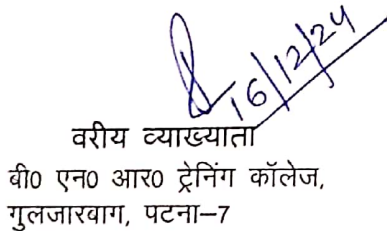 16/12/24
वरीय व्याख्याता
बी0 एन0 आर0 ट्रेनिंग कॉलेज,
गुलजारबाग, पटना–7